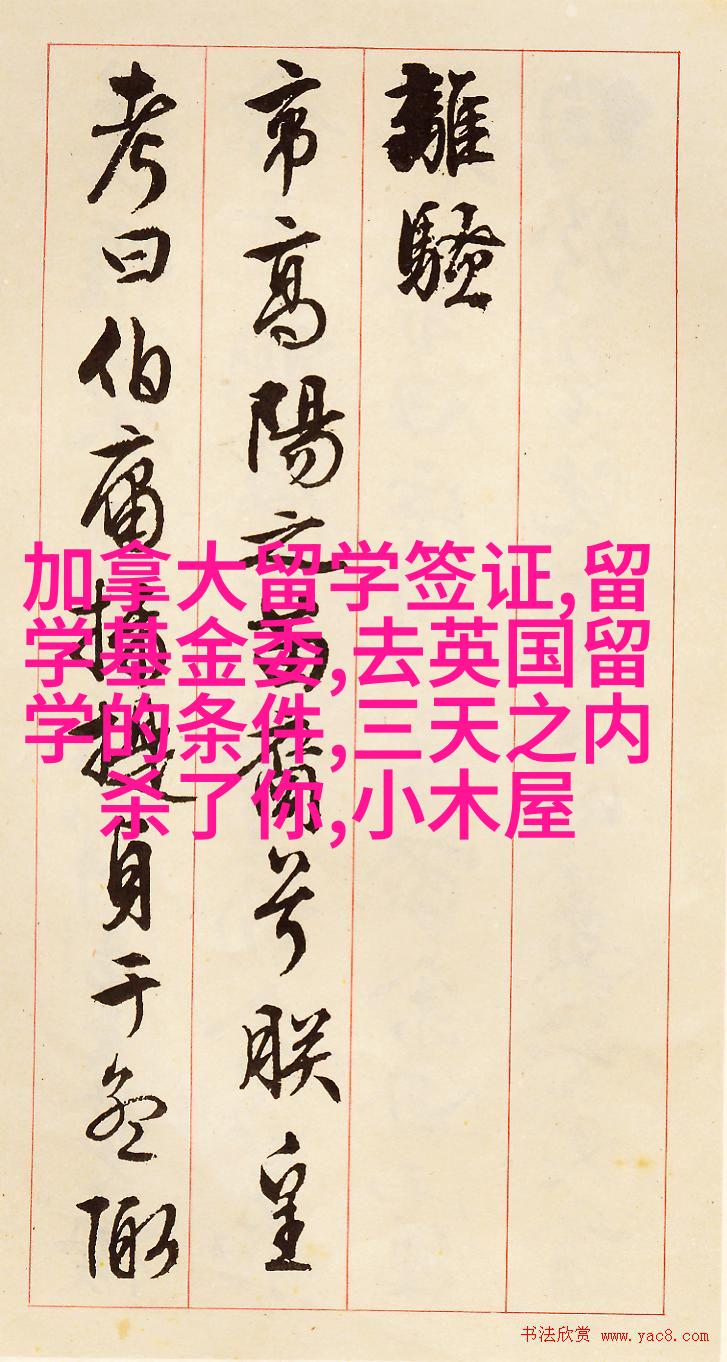 離騷
帝高陽之苗裔兮朕皇
考曰伯庸攝提貞于孟陬
加拿大留学签证,留
学基金委,去英国留
学的条件,三天之内
杀了你,小木屋
书法欣赏 www.yac8.com